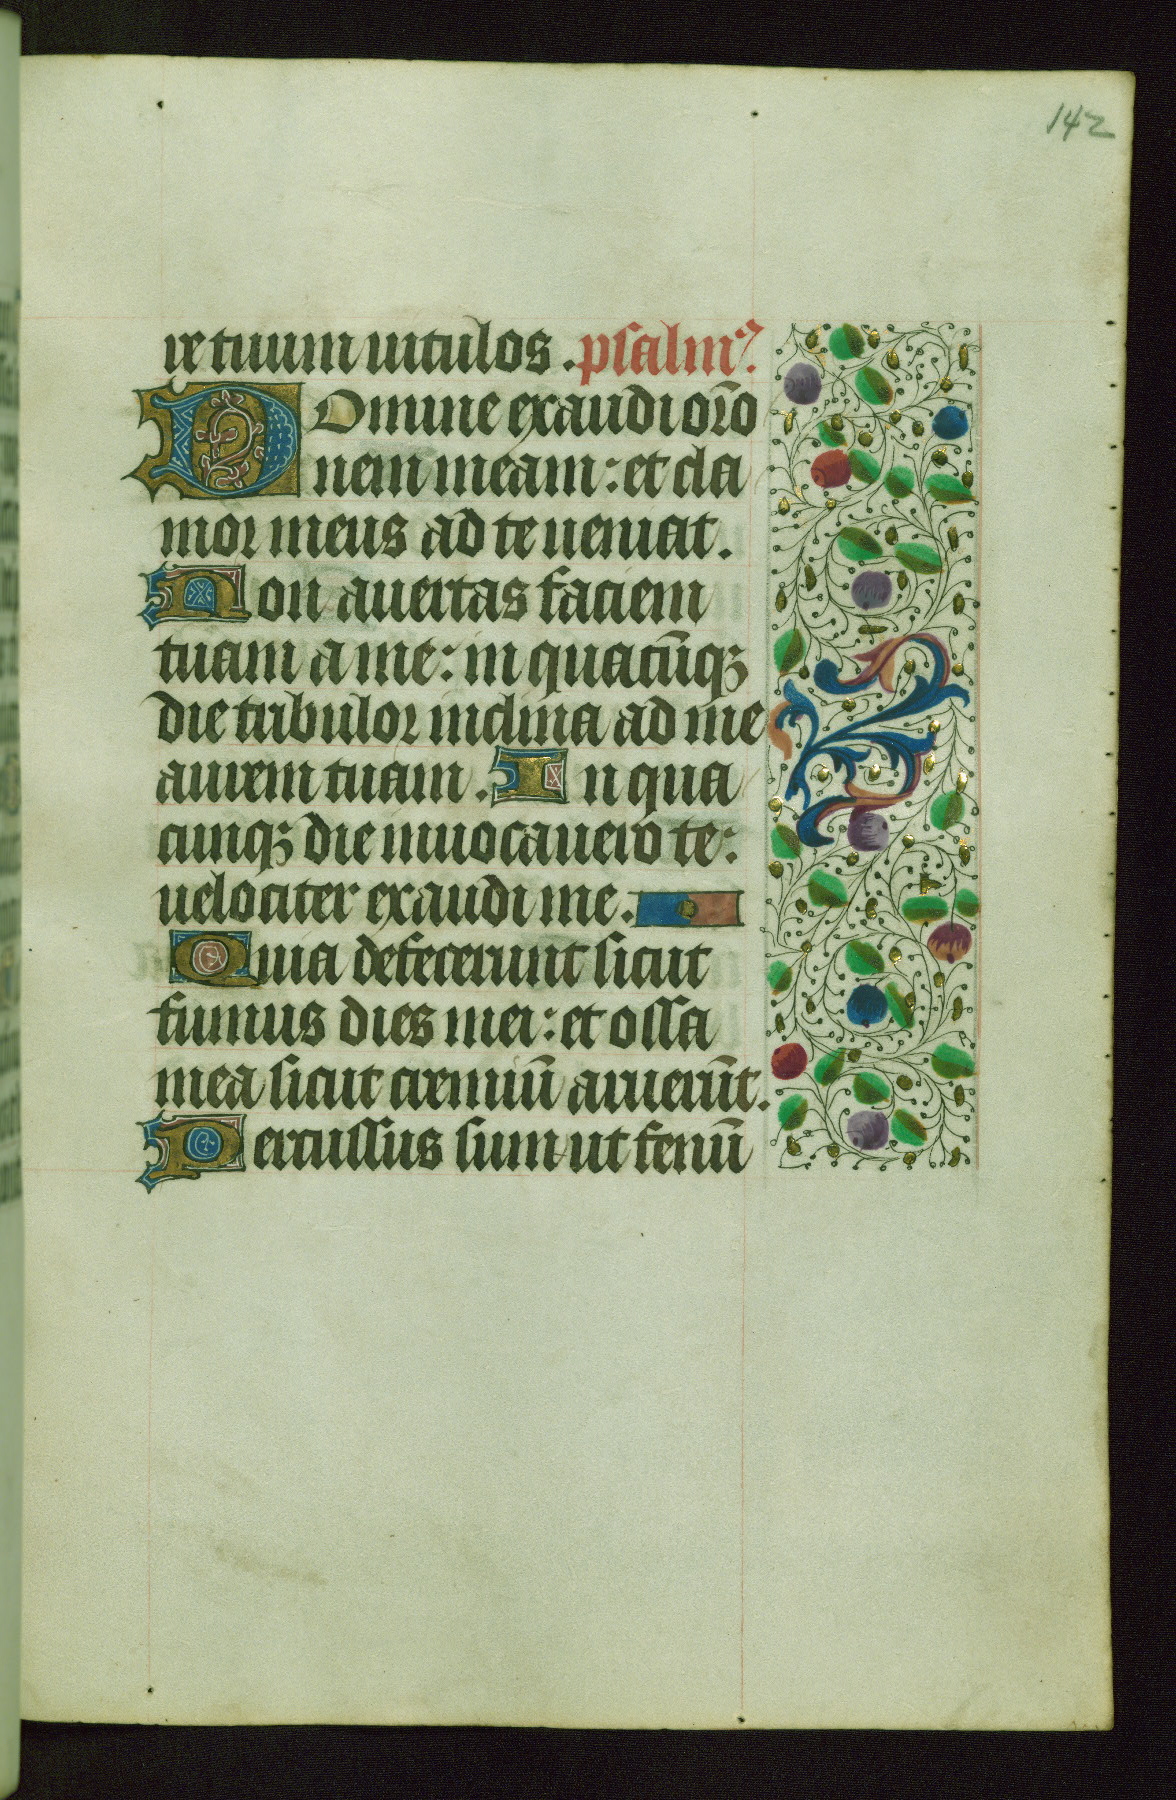 142
re tuum uitulos . psalmꝰ.
Domine exaudi or̄o
nem meam : et cla
mor meus ad te ueniat .
Non auertas faciem
tuam a me : in quacūqꝫ
die tribulor inclina ad me
aurem tuam . In qua
cunqꝫ die inuocauero te :
uelociter exaudi me .
Quia defecerunt sicut
fumus dies mei : et ossa
mea sicut cremiū aruerūt .
Percussus sum ut fenū